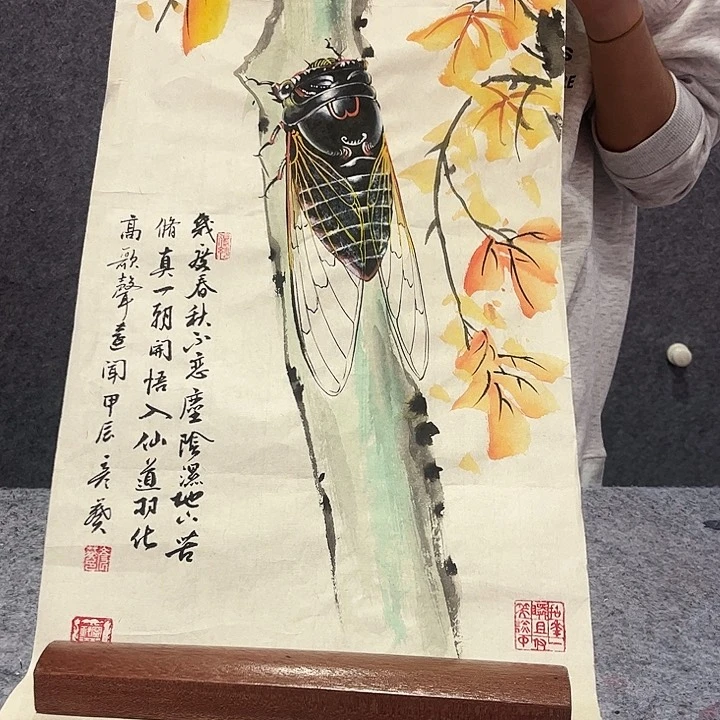 幾度春秋不恋塵陰濕地下苦
脩真一朝開悟入仙道羽化
高歌聲遠聞甲辰彦藝